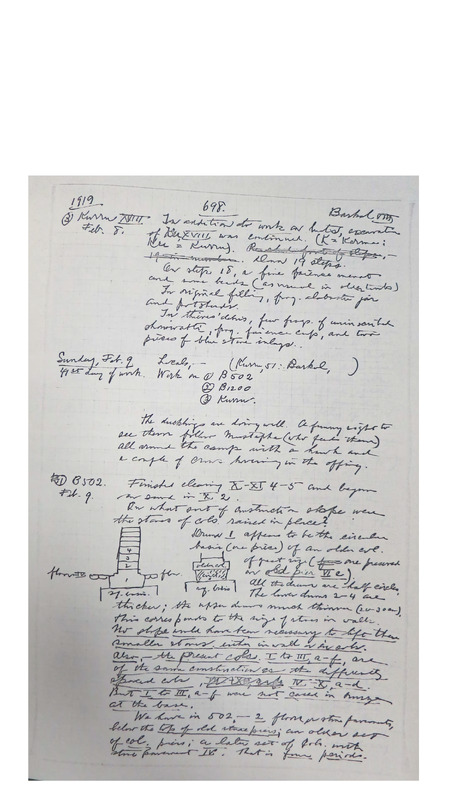 1919
698.
Barkal VIII
③ Kurru XVIII
Feb. 8.
In addition to work on but, excavation
of Ku XVIII was continued. (K = Kerma;
Ku = Kurru).
Down 19 steps.
On step 18, a fine faience amulet
and some beads (as usual in older tombs)
In original filling, frag. alabaster jar
and potsherds.
In thieves' debris, few frags. of uninscribed
shawabtis, frag. faience cup, and two
pieces of blue stone inlays.
Sunday, Feb. 9
day of work.
Locals, — (Kurru, 51: Barkal, )
Work on ① B 502
② B 1200
③ Kurru.
The ducklings are doing well. A funny sight to
see them follow Mustapha (who feeds them)
all around the camp with a hawk and
a couple of crows hovering in the offing.
① B 502.
Feb. 9.
Finished clearing X-XI 4-5 and began
on sand in X 2.
On what sort of construction slope were
the stones of cols. raised in place?
Drum 1 appears to be the circular
basis (one piece) of an older col.
of great size (are preserved
on old pier VI c)
All the drums are half circles.
The lower drums 2-4 are
thicker; the upper drums much thinner (20-30 cm),
this corresponds to the size of stones in walls.
No slope would have been necessary to lift these
smaller stones either in wall or in cols.
Also the present cols. I to III, a-f, are
of the same construction as the differently
spaced cols. IV-X, a-d.
But I to III, a-f were not cased in masonry
at the base.
We have in 502, — 2 floors or stone pavements,
below the top of old stone piers; an older set
of cols, piers; a later set of cols. with
stone pavement IV. That is four periods.
4
3
2
1
floor
flr.
sq. basis.
old col.
sq. basis